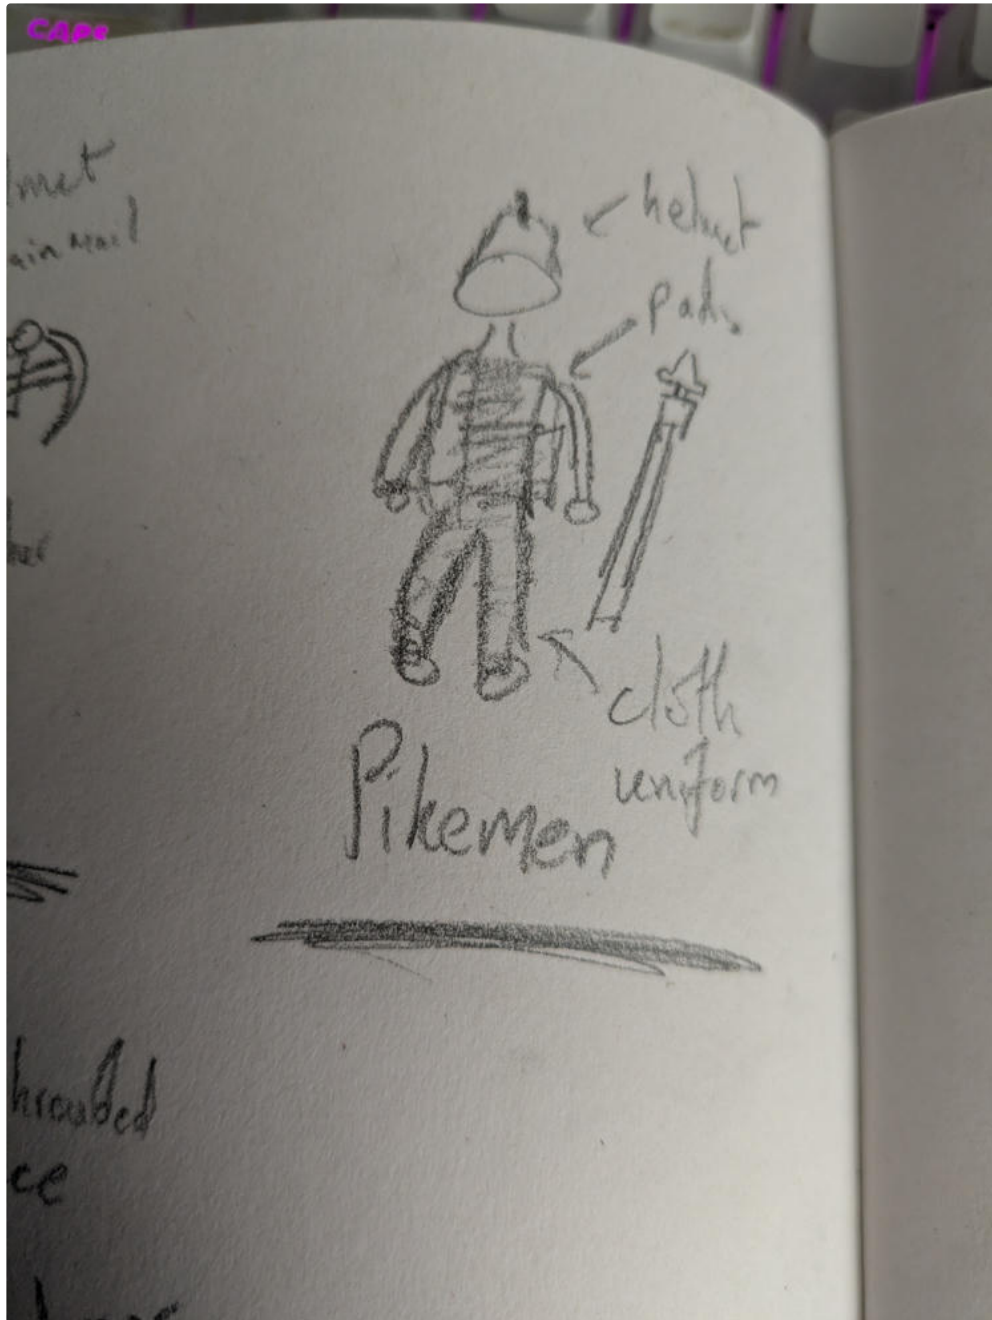 Caps
lmet
ain mail
helmet
pads
cloth
uniform
Pikemen
hrouded
ce